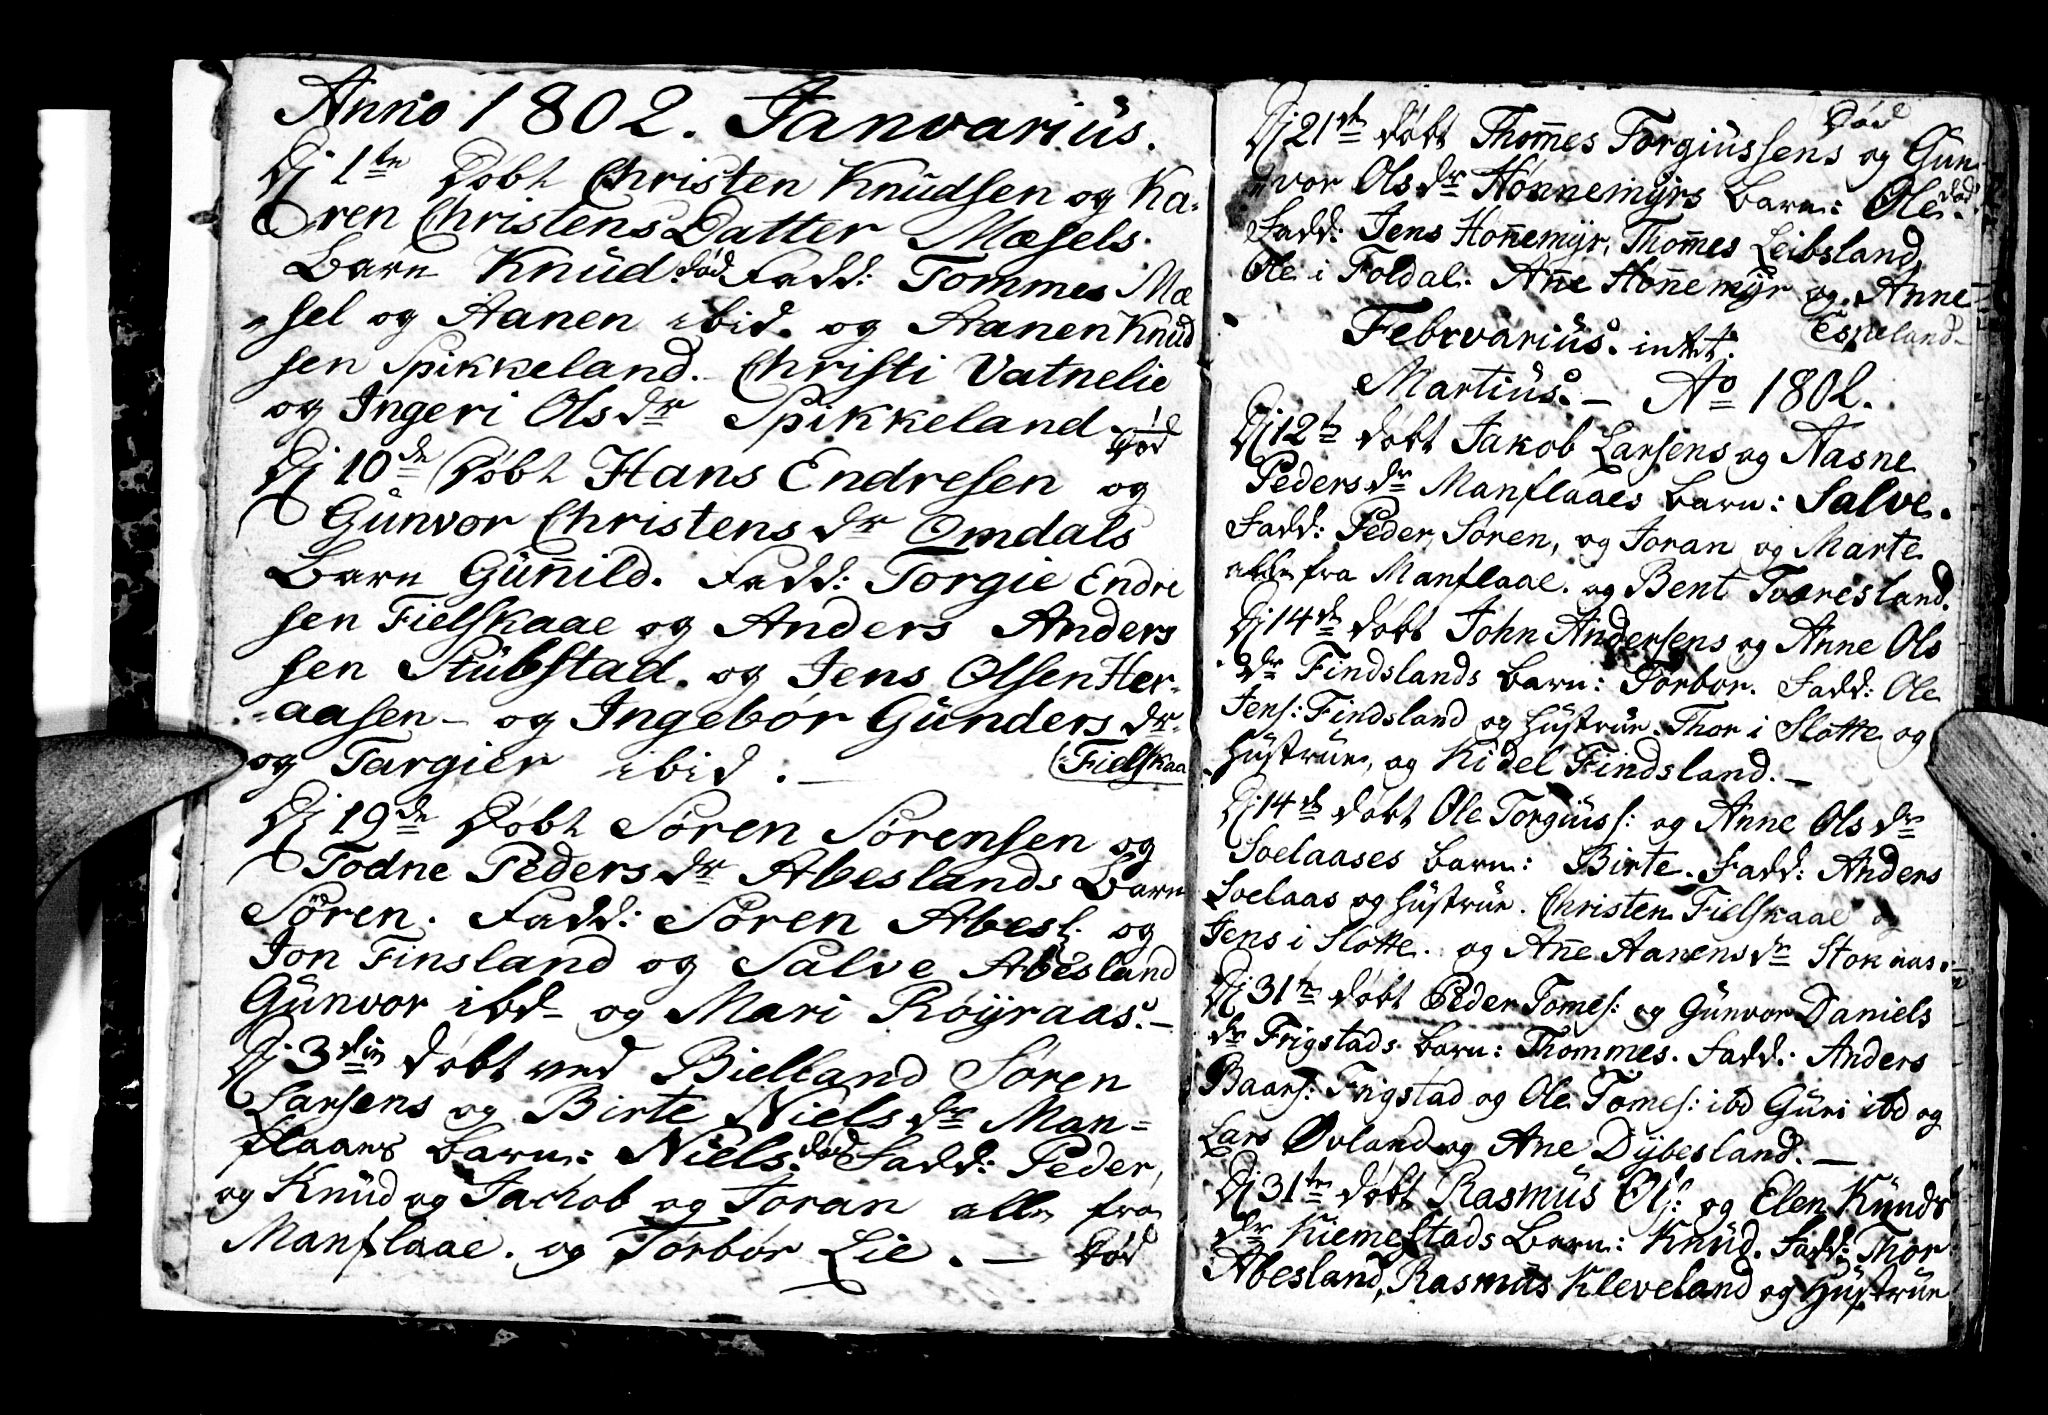 Anno 1802. Janvarius.
Dj 1te Døbt Christen Knudsen og Ka-
ren Christens Datter Mæsels.
Barn Knud. død Fadd: Tommes Mæ
sel og Aanen ibid. og Aanen Knud
sen Spikkeland. Christi Vatnelie
og Ingeri Olsdr Spikkeland.
død
Dj 10de Døbt Hans Endresen og
Gunvor Christensdr Omdals
Barn Guñild. Fadd: Torgie Endre
sen Fielskaae og Anders Anders
sen Stubstad. og Jens Olsen Her-
aasen – og Ingebor Gundersdr
og Targier ibid. – Fielskaa
Dj 19de Døbt Søren Sørensen og
Todne Pedersdr Abeslands Barn
Søren. Fadd: Søren Abesl. og
Jon Finsland og Salve Abesland
Gunvor ibd og Mari Røÿraas. –
Dj 3die døbt ved Bielland Søren
Larsens og Birte Nielsdr Man-
flaaes Barn: Niels. død Fadd: Peder,
og Knud og Jachob og Joran alle fra
Manflaae. og Torbor Lie. – død
død
Dj 21de døbt Thom̄es Torgiussens og Gun-
vor Olsdr Hønnemÿrs Barn: Ole. død.
Fadd: Jens Hon̄emÿr, Thom̄es Leibsland,
Ole i Foldal. An̄e Hon̄emÿr og Anne
Espeland
Febrvarius. intet.
Martius. – Ao 1802.
Dj 12te døbt Jakob Larsens og Aasne
Pedersdr Manflaaes Barn: Salve.
Fadd: Peder, Søren, og Joran og Marte
alle fra Manflaae. og Bent Tvaresland.
Dj 14de døbt John Andersens og Anne Ols
dr Findslands Barn: Torbor. Fadd: Ole
Jens: Findsland og Hustrue. Thor i Slotte og
Hustrue, og Kidel Findsland. –
Dj 14de døbt Ole Torgiuss: og Anne Olsdr
Soelaases Barn: Birte. Fadd: Anders
Soelaas og Hustrue. Christen Fielskaae og
Jens i Slotte. og An̄e Aanensdr Stokaas. –
Dj 31te døbt Peder Tomes: og Gunvor Daniels
dr Frigstads Barn: Thommes. Fadd: Anders
Baars: Frigstad og Ole Tomes: ibd Guri ibd og
Lars Øvland og Ane Dÿbesland. –
Dj 31te døbt Rasmus Ols: og Elen Knuds
dr Kiemestads Barn: Knud. Fadd: Thor
Abesland, Rasmus Kleveland og Hustrue